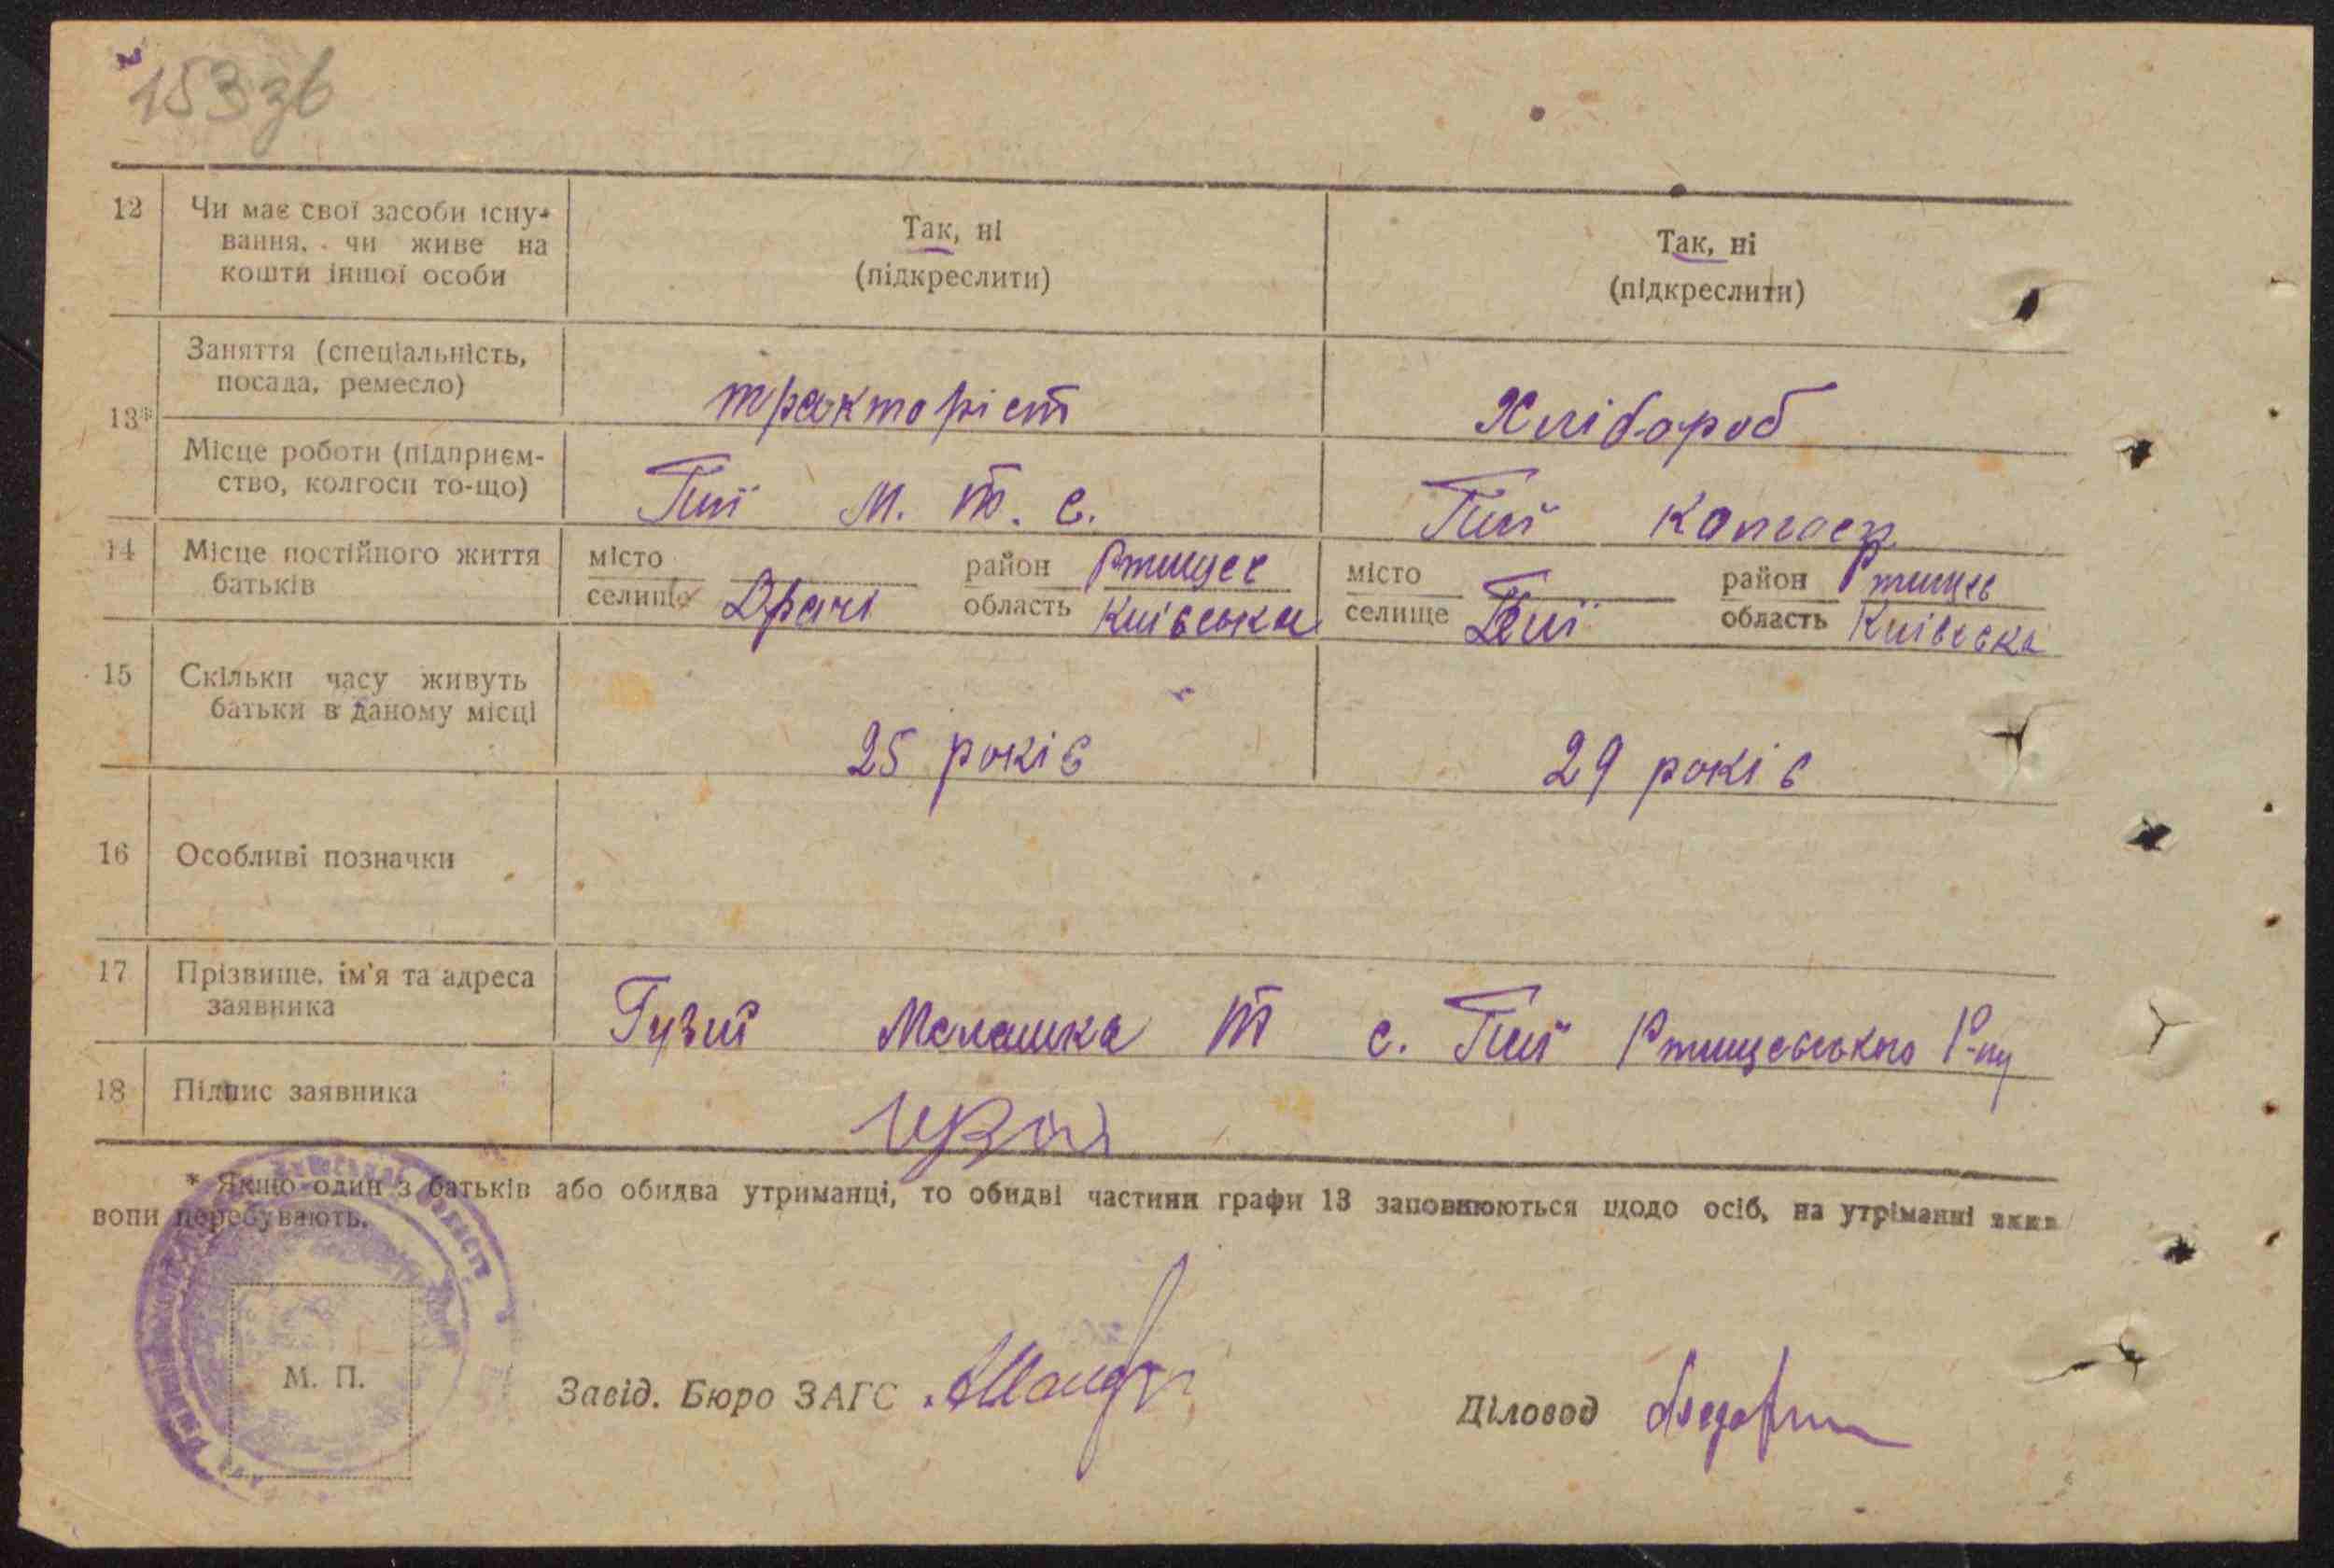 153 зв
12
Чи має свої засоби існу-
вання, чи живе на
кошти іншої особи
Так, ні
(підкреслити)
Так, ні
(підкреслити)
13*
Заняття (спеціальність,
посада, ремесло)
тракторіст
Хлібороб
Місце роботи (підприєм-
ство, колгосп то-що)
Пиї М. Т. С.
Пиї Колгосп
14
Місце постійного життя
батьків
місто
селище Драчі
район Ртищев
область Київська
місто
селище Пиї
район Ртищев
область Київська
15
Скільки часу живуть
батьки в даному місці
25 років
29 років
16
Особливі позначки
17
Прізвище, ім'я та адреса
заявника
Гузий Мелашка Т с. Пиї Ртищевського Р-ну
18
Підпис заявника
* Якщо один з батьків або обидва утриманці, то обидві частини графи 13 заповнюються щодо осіб, на утріманні яких
вони перебувають.
М. П.
Завід. Бюро ЗАГС
Діловод